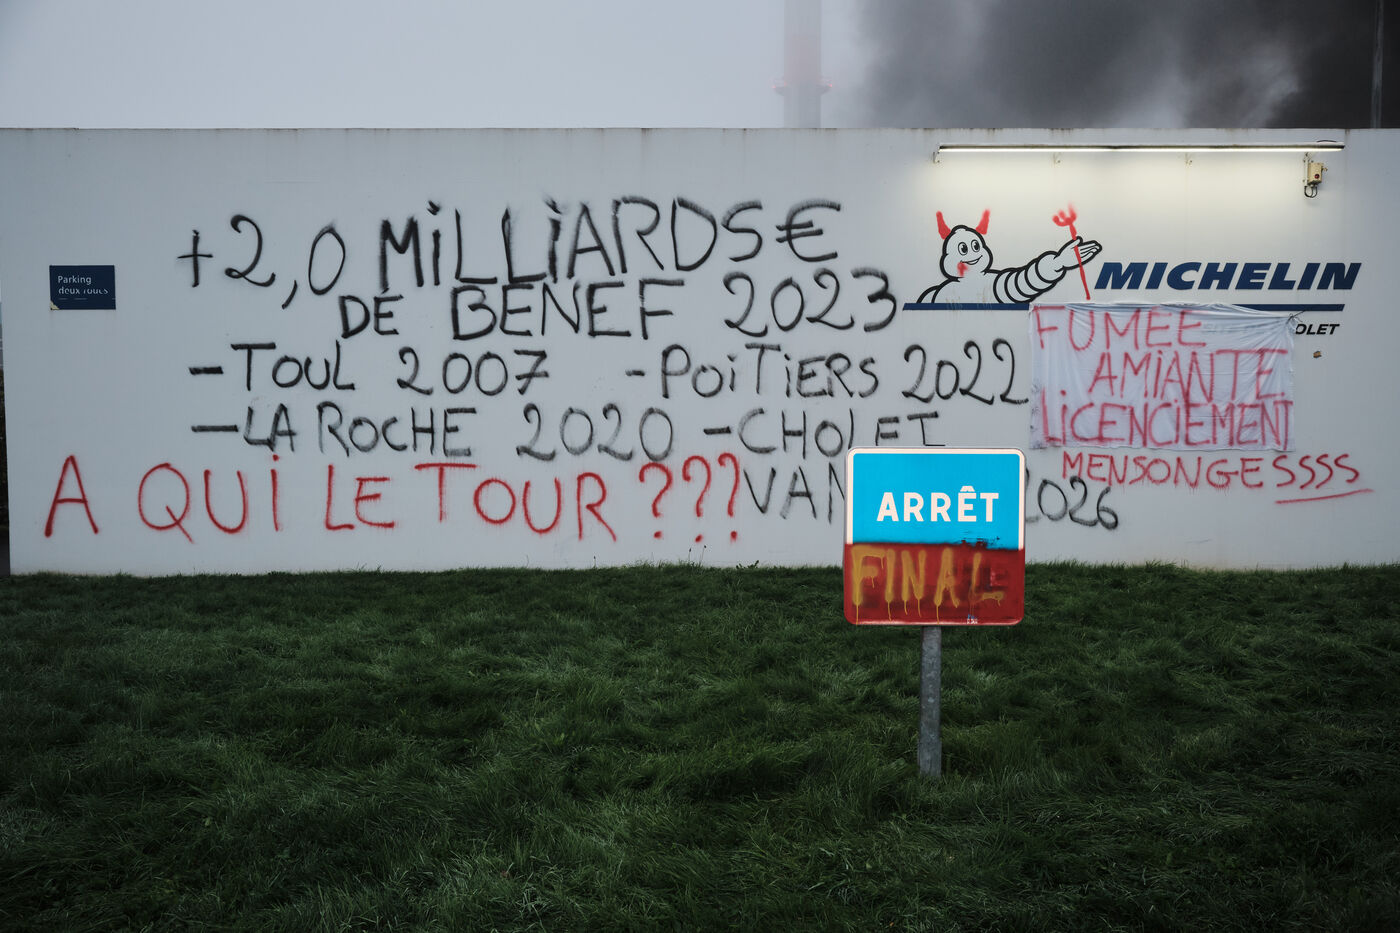 Parking
deux roues
+2,0 MILLIARDS €
DE BENEF 2023
- TOUL 2007 - POITIERS 2022
- LA ROCHE 2020 - CHOLET
A QUI LE TOUR ??? VAN 2026
MICHELIN
OLET
FUMEE
AMIANTE
LICENCIEMENT
MENSONGESSSS
ARRÊT
FINAL